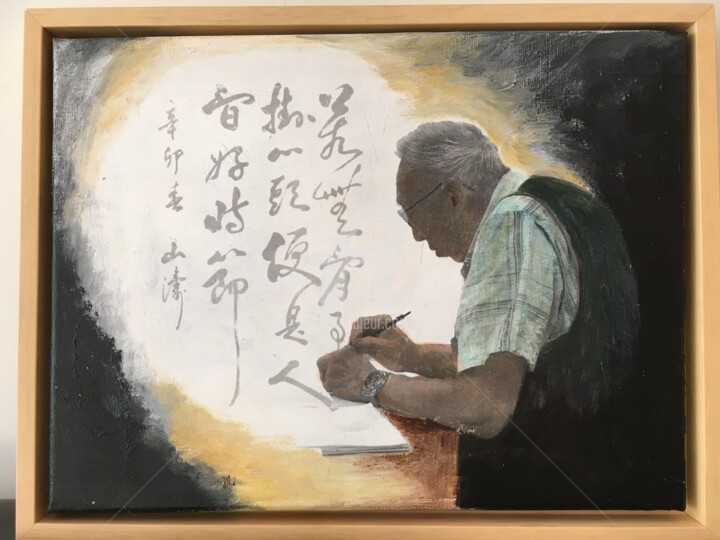 若無閒事
掛心頭便是人
間好時節
辛卯春 山濤